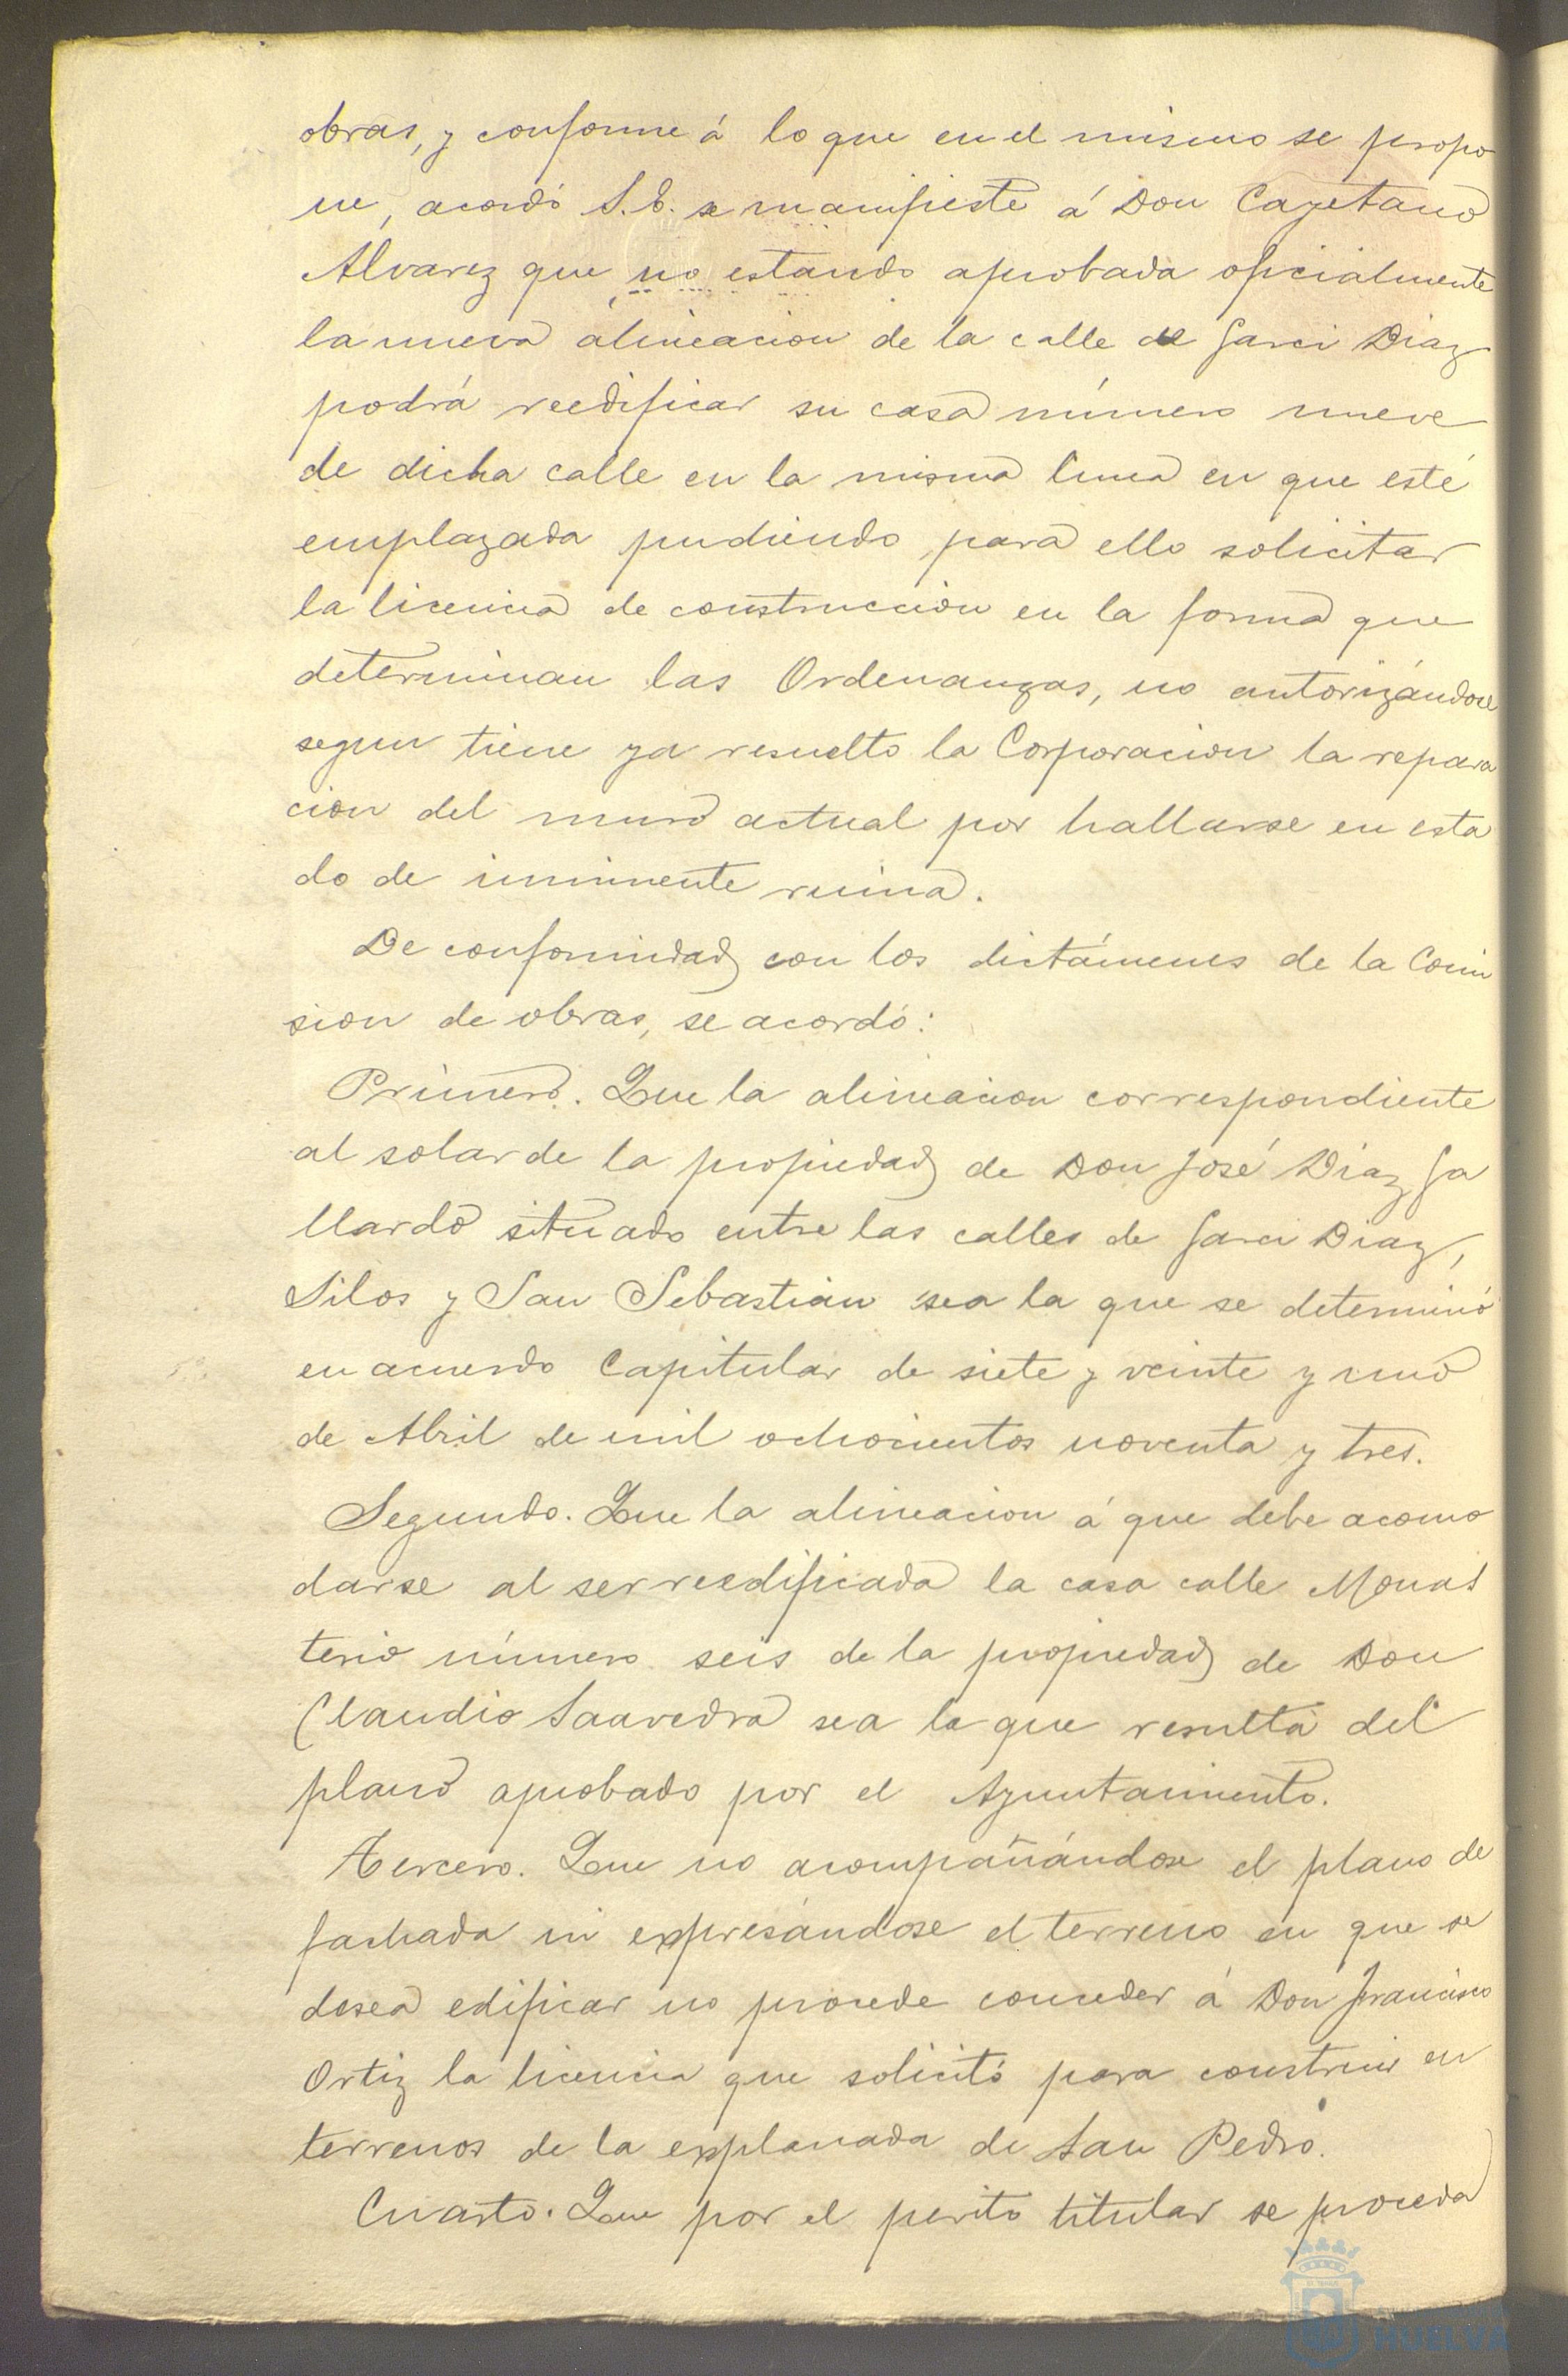 obras, y conforme á lo que en el mismo se propo
ne, acordó S.E. se manifieste á Don Cayetano
Alvarez que no estando aprobada oficialmente
la nueva alineacion de la calle de Garci Diaz
podrá reedificar su casa número nueve
de dicha calle en la misma linea en que esté
emplazada pudiendo para ello solicitar
la licencia de construccion en la forma que
determinan las Ordenanzas, no autorizándose
segun tiene ya resuelto la Corporacion la repara
cion del muro actual por hallarse en esta
do de inminente ruina.
De conformidad con los dictámenes de la Comi
sion de obras, se acordó:
Primero. Que la alineacion correspondiente
al solar de la propiedad de Don José Diaz Ga
llardo situado entre las calles de Garci Diaz,
Silos y San Sebastian sea la que se determinó
en acuerdo Capitular de siete y veinte y uno
de Abril de mil ochocientos noventa y tres.
Segundo. Que la alineacion á que debe acomo
darse al ser reedificada la casa calle Monas
terio número seis de la propiedad de Don
Claudio Saavedra sea la que resulta del
plano aprobado por el Ayuntamiento.
Tercero. Que no acompañándose el plano de
fachada ni expresándose el terreno en que se
desea edificar no procede conceder á Don Francisco
Ortiz la licencia que solicitó para construir en
terrenos de la explanada de San Pedro.
Cuarto. Que por el perito titular se proceda
HUELVA